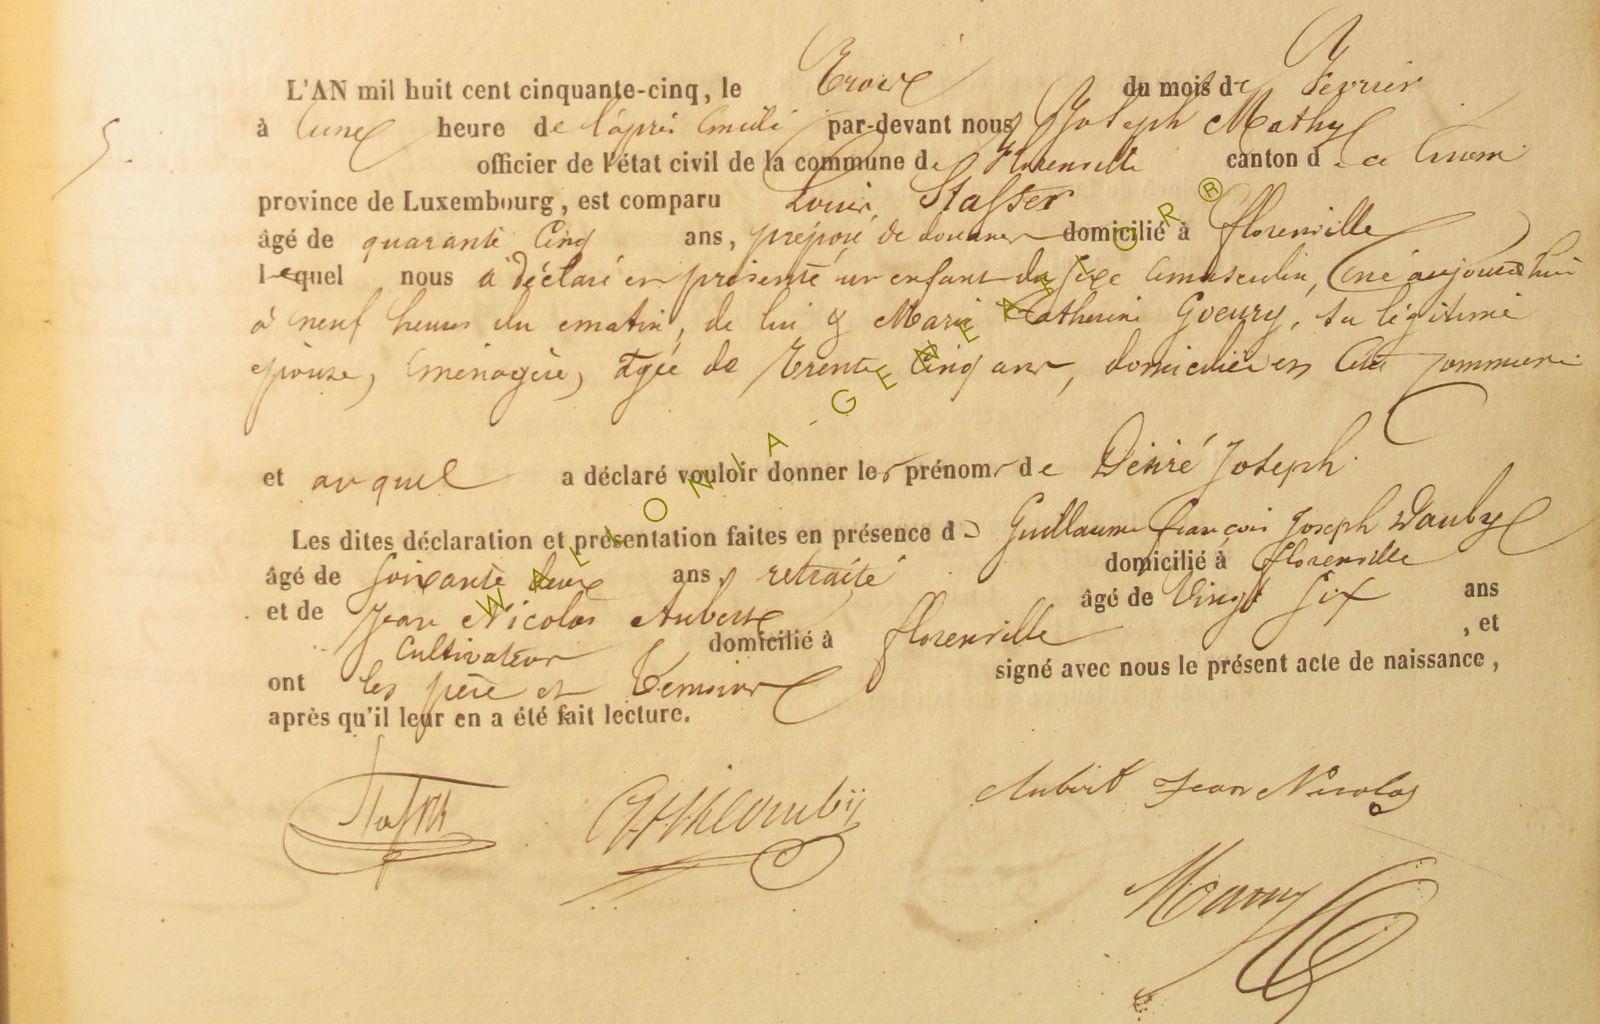 L'AN mil huit cent cinquante-cinq, le Trois du mois de Fevrier
5. à une heure de l'après midi par-devant nous Joseph Mathy
officier de l'état civil de la commune de Florenville canton d e ce nom
province de Luxembourg, est comparu Louis Stasser
âgé de quarante Cinq ans, préposé de douanes domicilié à florenville
lequel nous a déclaré et présenté un enfant du sexe masculin, né aujourd'hui
à neuf heures du matin, de lui & Marie Catherine Goeury, sa légitime
épouse, ménagère, agée de Trente Cinq ans, domiciliée en Cette commune
et auquel a déclaré vouloir donner les prénoms de Désiré Joseph
Les dites déclaration et présentation faites en présence de Guillaume françois Joseph Dauby
âgé de soixante deux ans, retraité domicilié à florenville
et de Jean Nicolas Aubert âgé de Vingt Six ans
Cultivateur domicilié à florenville , et
ont les père et Temoins signé avec nous le présent acte de naissance,
après qu'il leur en a été fait lecture.
Stasser Aubert Jean Nicolas
WALLONIA-GENEALOGR®